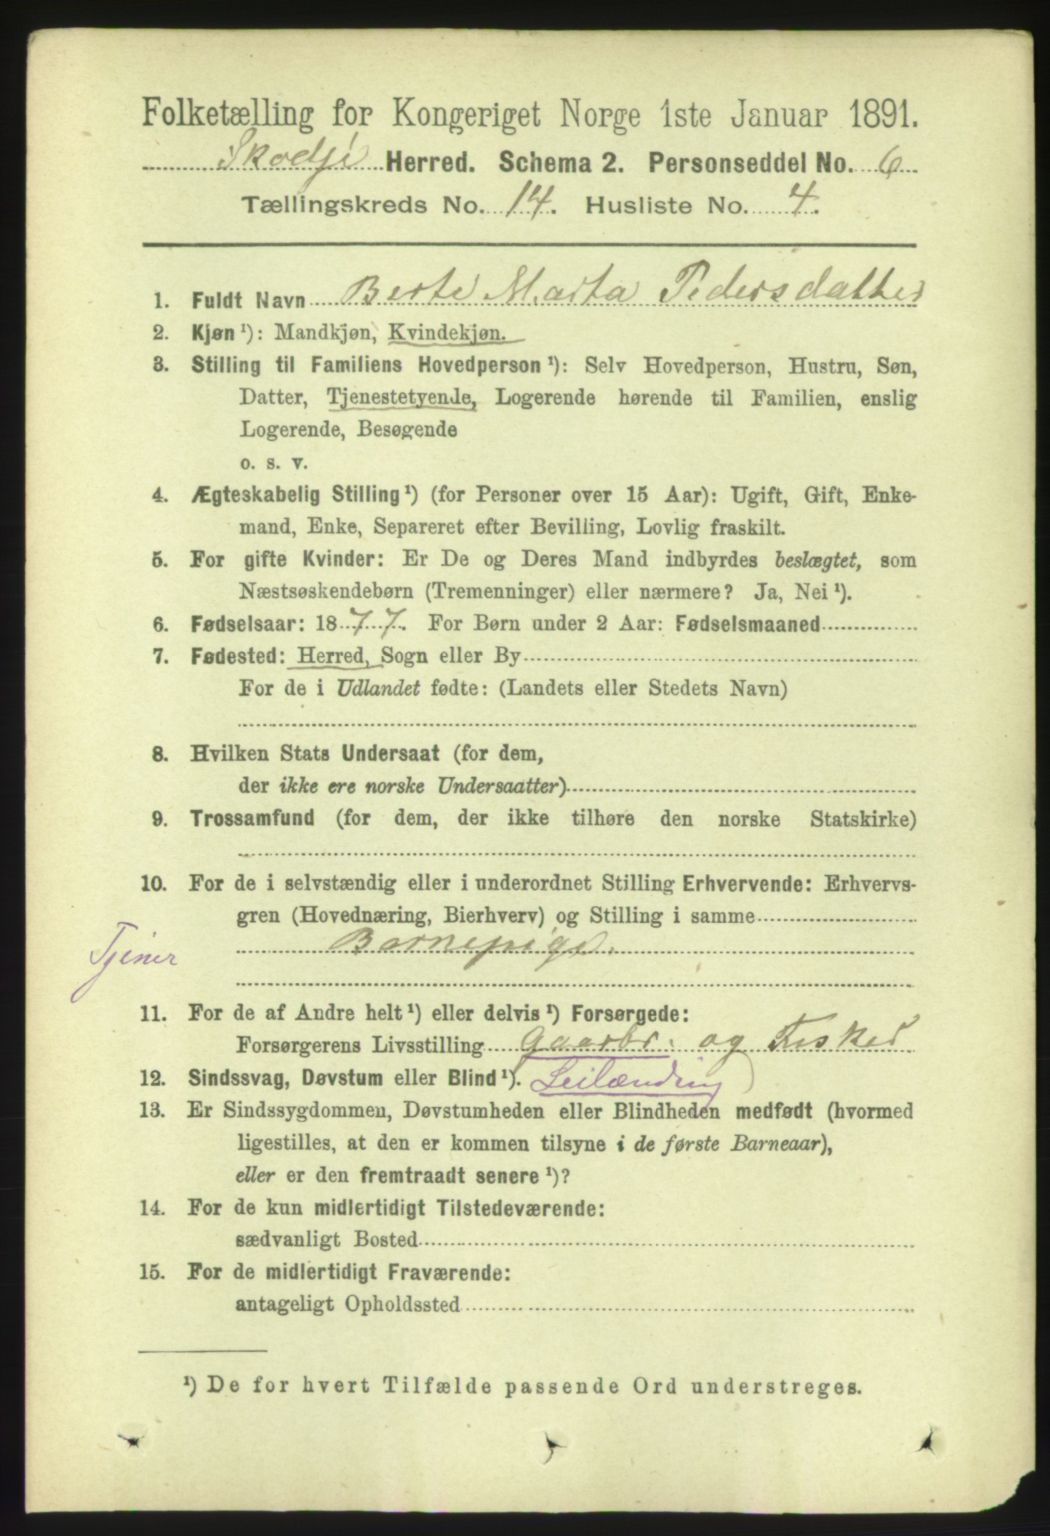 Folketælling for Kongeriget Norge 1ste Januar 1891.
Skodje Herred. Schema 2. Personseddel No. 6
Tællingskreds No. 14. Husliste No. 4.
1. Fuldt Navn Berte Marta Pedersdatter
2. Kjøn ¹): Mandkjøn, Kvindekjøn.
3. Stilling til Familiens Hovedperson ¹): Selv Hovedperson, Hustru, Søn,
Datter, Tjenestetyende, Logerende hørende til Familien, enslig
Logerende, Besøgende
o. s. v.
4. Ægteskabelig Stilling ¹) (for Personer over 15 Aar): Ugift, Gift, Enke-
mand, Enke, Separeret efter Bevilling, Lovlig fraskilt.
5. For gifte Kvinder: Er De og Deres Mand indbyrdes beslægtet, som
Næstsøskendebørn (Tremenninger) eller nærmere? Ja, Nei ¹).
6. Fødselsaar: 1877. For Børn under 2 Aar: Fødselsmaaned
7. Fødested: Herred, Sogn eller By
For de i Udlandet fødte: (Landets eller Stedets Navn)
8. Hvilken Stats Undersaat (for dem,
der ikke ere norske Undersaatter)
9. Trossamfund (for dem, der ikke tilhøre den norske Statskirke)
10. For de i selvstændig eller i underordnet Stilling Erhvervende: Erhvervs-
gren (Hovednæring, Bierhverv) og Stilling i samme
Tjener Barnepige.
11. For de af Andre helt ¹) eller delvis ¹) Forsørgede:
Forsørgerens Livsstilling Gaardbr. og Fisker
12. Sindssvag, Døvstum eller Blind ¹). Leilænding
13. Er Sindssygdommen, Døvstumheden eller Blindheden medfødt (hvormed
ligestilles, at den er kommen tilsyne i de første Barneaar),
eller er den fremtraadt senere ¹)?
14. For de kun midlertidigt Tilstedeværende:
sædvanligt Bosted
15. For de midlertidigt Fraværende:
antageligt Opholdssted
¹) De for hvert Tilfælde passende Ord understreges.